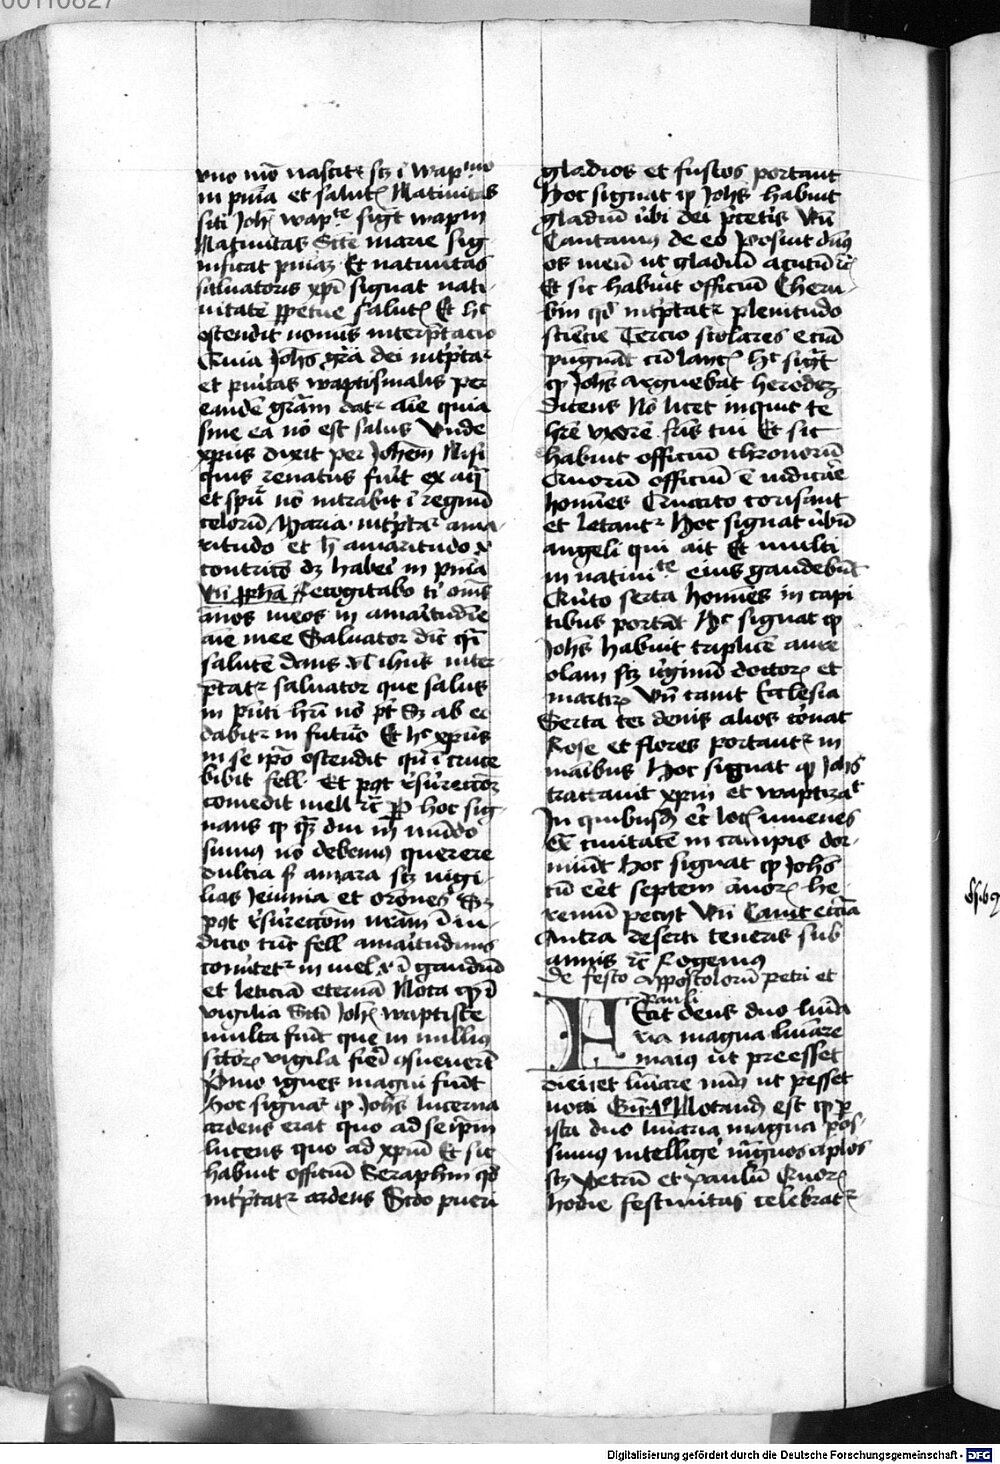 00110827
vno mō nascitr scz ī wapmo
in pnīa et salutꝭ Natiuitas
siti Joħ wapte sigt wapm
Natiuitas Sctē marie sig
nificat pniaz Et natiuitas
saluatoris xpī signat nati
uitatē ppetue salutꝭ Et hc
ostendit nomīs interptacio
Quia Johs grā dei intptar
et puritas waptismalis per
eandē grām datr aīe quia
sine ea nō est salus Vnde
xpūs dixit per Johēm Nisi
quis renatus fuīt ex aq
et spū nō intrabit ī regnū
celorū Maria intptar ama
ritudo et h amaritudo
contricō dz haberi in pnīa
Vn ppha Recogitabo ti om̄s
ānos meos in amaitudīe
aīe mee Saluator dic qi
salutē dans vl ihus inter
ptatr saluator que salus
in pnti hri nō pt Sz ab eo
dabitr in futuo Et hc xpūs
in se ipo ostendit qn ī cruce
bibit fell Et pqt rsurectoēz
comedit mell rc pp hoc sig
nans ꝙ qz diu ī mūdo
sumus nō debemus querere
dulcia s amara scz uigi
lias Jeiunia et orōnes Sz
pqt rsurectōem nrām ī iu
dicio tūc fell amaitudinis
conutetr in mel ī gaudiū
et leticiā eternā Nota ꝙ ī
vigilia Scti Joh waptiste
multa fiūt que in nullius
sctoꝝ vigila fieri gsueuerūt
Pmo ignes magni fiunt
Hoc signat ꝙ Johs lucerna
ardens erat quo ad seipm
lucens quo ad xpm Et sic
habuit officiū Seraphin qd
intptatr ardens Scdo pueri
gladios et fustes portant
Hoc signat ꝙ Johs habuit
gladiū ubi dei pcetis Vn
Cantamus de eo Posuit dns
os meū ut gladiū acutū rc
Et sic habuit officiū Cheru
bin qd intptatr plenitudo
sciēcie Tercio scolares eciā
pugnāt cū lancꝭ hc sigt
ꝙ Johs arguebat herodez
dicens Nō licet inquit te
hre vxorē fris tui Et sic
habuit officiū thronorū
Quorū officiū ē iudicare
homīes Quarto corisant
et letantr Hoc signat ubū
angeli qui ait Et multi
in natiuite eius gaudebūt
Quīto serta homīes in capi
tibus portāt Hc signat ꝙ
Johs habuit triplicē aure
olam scz uginū doctoꝝ et
martiꝝ Vn canit Ecclesia
Serta ter denis alios coronat
Rose et flores portantr in
manibus Hoc signat ꝙ Johs
tractauit xpm et waptizat
In quibusd et locꝭ iuuenes
ex ciuitatē in campis dor
miūt Hoc signat ꝙ Johs
cū eet septem ānoꝝ he
remū peciit Vn Canit eccīa
Antra deserti teneris sub
annis rc Rogemus
De festo appostolorū petri et
Pauli
Fecit deus duo lumīa
ria magna lumīare
maius ut preesset
diei et lumīare mīus ut pesset
nocti Gn̄ 1o Notand est ꝙ p
ista duo lumīaria magna pos
sumus intellige mgnos aplos
scz Petrū et Paulū Quoꝝ
hodie festiuitas celebratr
Digitalisierung gefördert durch die Deutsche Forschungsgemeinschaft - DFG